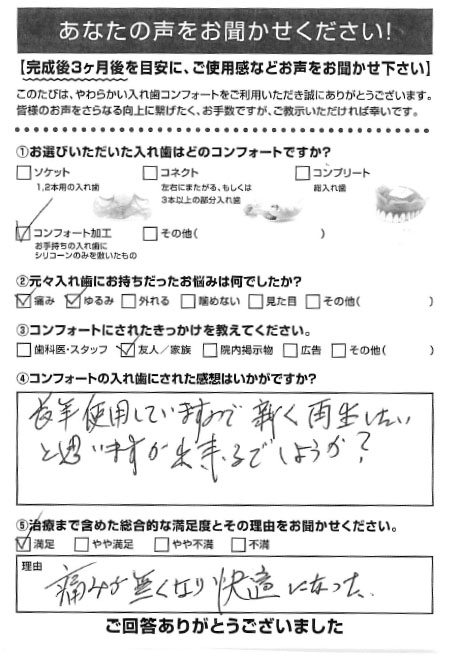 あなたの声をお聞かせください!
【完成後3ヶ月後を目安に、ご使用感などお声をお聞かせ下さい】
このたびは、やわらかい入れ歯コンフォートをご利用いただき誠にありがとうございます。
皆様のお声をさらなる向上に繋げたく、お手数ですが、ご教示いただければ幸いです。
①お選びいただいた入れ歯はどのコンフォートですか?
□ソケット □コネクト □コンプリート
1,2本用の入れ歯 左右にまたがる、もしくは 総入れ歯
3本以上の部分入れ歯
☑コンフォート加工 □その他( )
お手持ちの入れ歯に
シリコーンのみを敷いたもの
②元々入れ歯にお持ちだったお悩みは何でしたか?
☑痛み ☑ゆるみ □外れる □噛めない □見た目 □その他( )
③コンフォートにされたきっかけを教えてください。
□歯科医・スタッフ ☑友人/家族 □院内掲示物 □広告 □その他( )
④コンフォートの入れ歯にされた感想はいかがですか?
長年使用していますので新く再生したい
と思いますが出来るでしょうか?
⑤治療まで含めた総合的な満足度とその理由をお聞かせください。
☑満足 □やや満足 □やや不満 □不満
理由
痛みが無くなり快適になった、
ご回答ありがとうございました